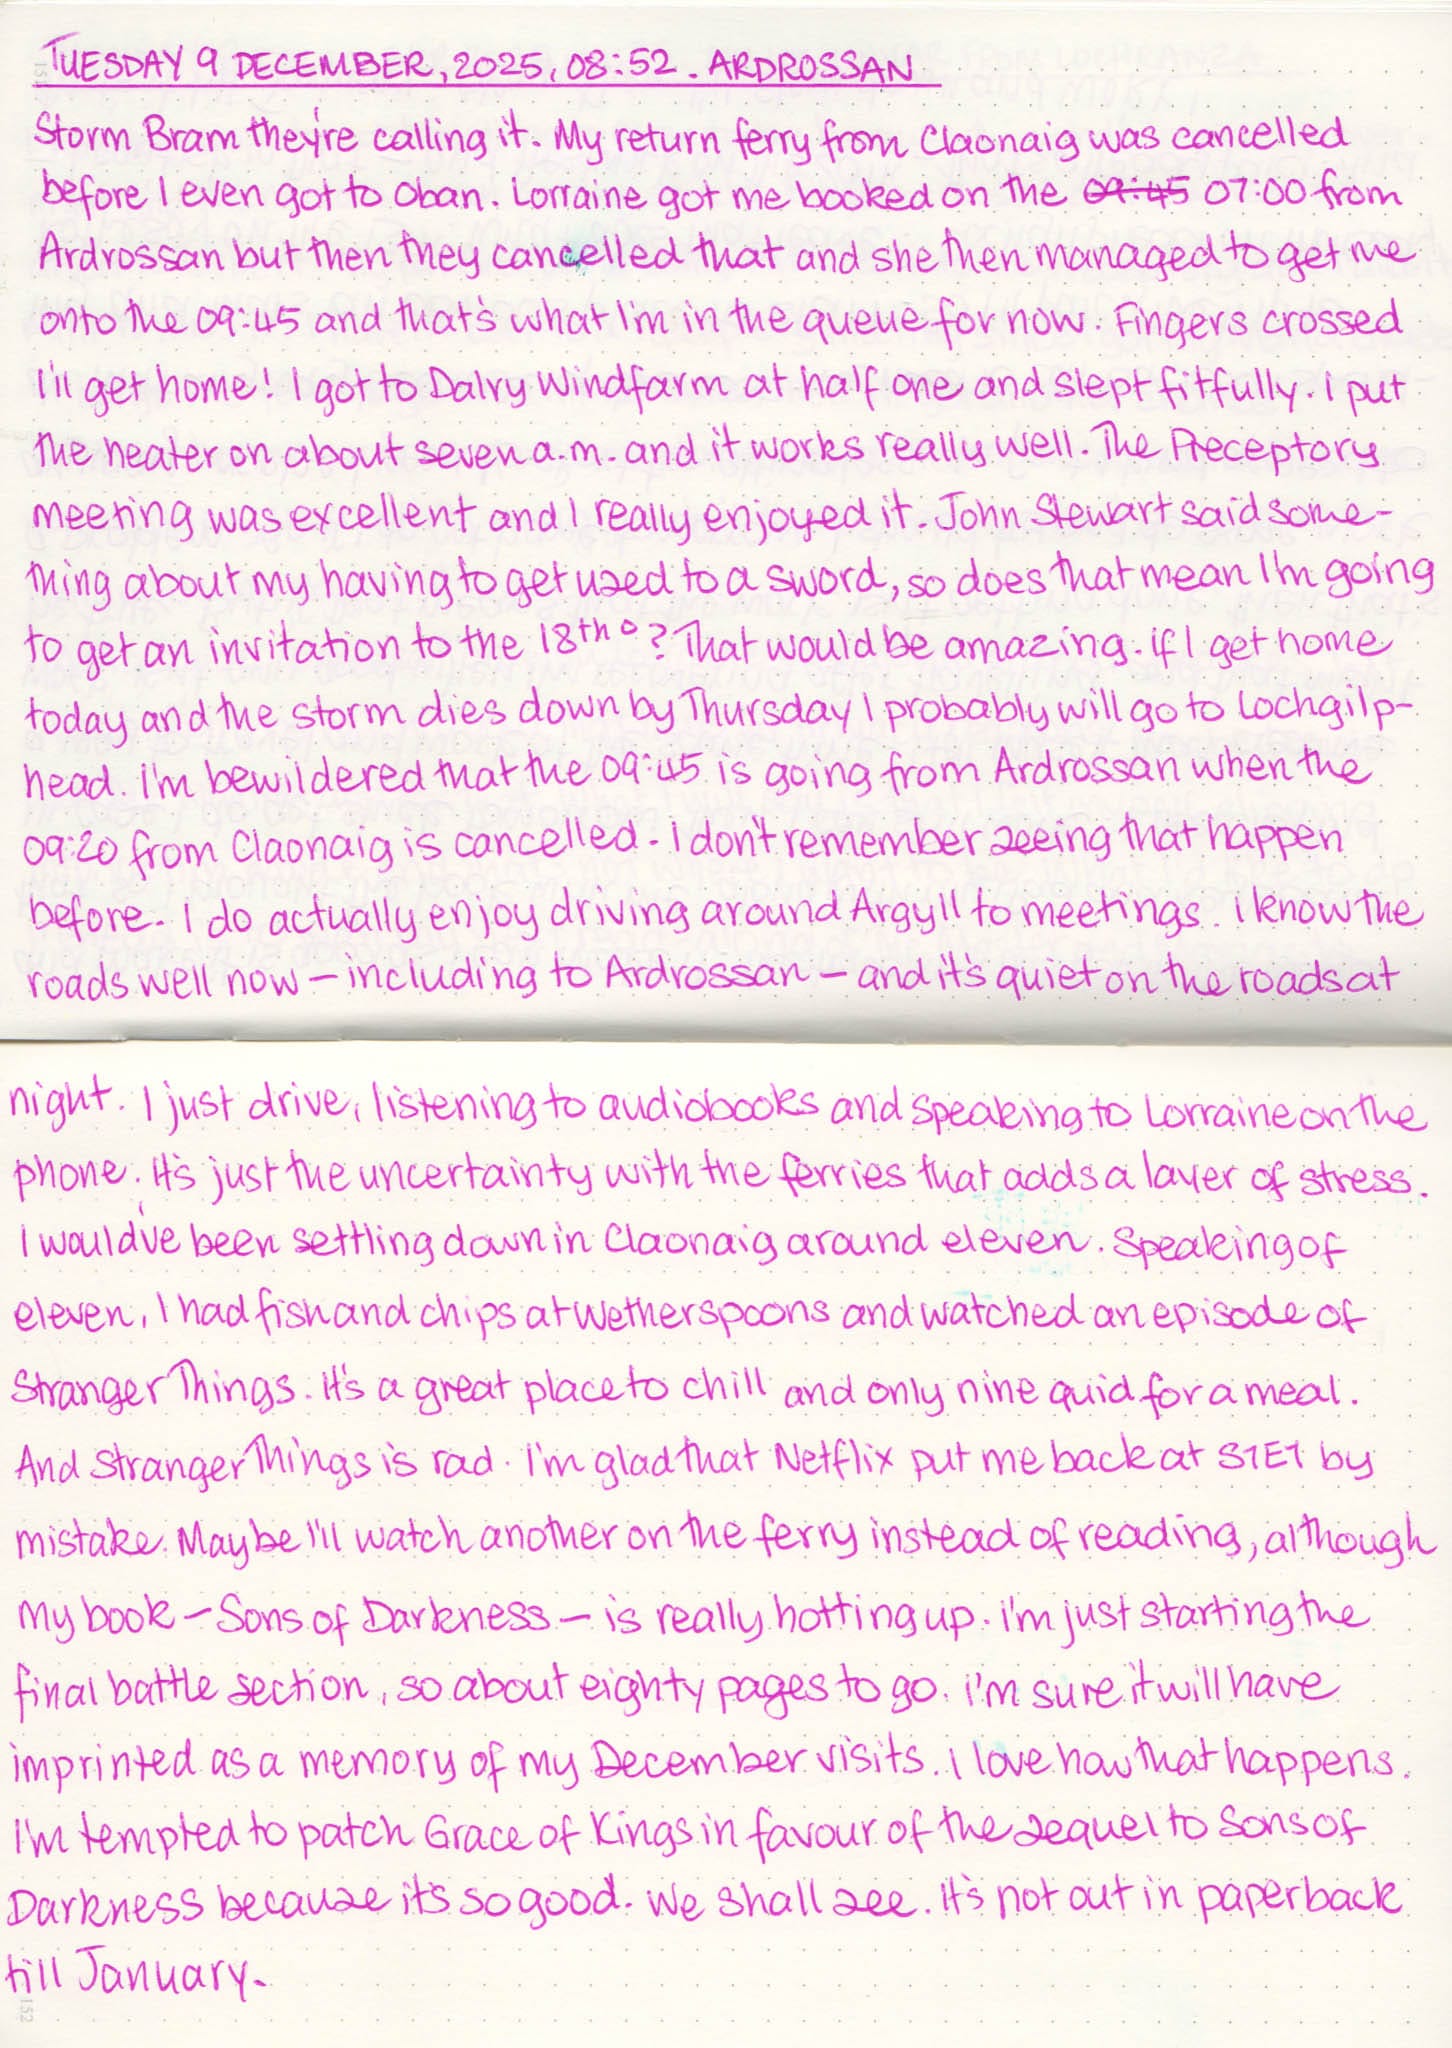 TUESDAY 9 DECEMBER, 2025, 08:52. ARDROSSAN
Storm Bram they're calling it. My return ferry from Claonaig was cancelled
before I even got to Oban. Lorraine got me booked on the 09:45 07:00 from
Ardrossan but then they cancelled that and she then managed to get me
onto the 09:45 and that's what I'm in the queue for now. Fingers crossed
I'll get home! I got to Dalry Windfarm at half one and slept fitfully. I put
the heater on about seven a.m. and it works really well. The Preceptory
meeting was excellent and I really enjoyed it. John Stewart said some-
thing about my having to get used to a sword, so does that mean I'm going
to get an invitation to the 18th°? That would be amazing. If I get home
today and the storm dies down by Thursday I probably will go to Lochgilp-
head. I'm bewildered that the 09:45 is going from Ardrossan when the
09:20 from Claonaig is cancelled. I don't remember seeing that happen
before. I do actually enjoy driving around Argyll to meetings. I know the
roads well now – including to Ardrossan – and it's quiet on the roads at
night. I just drive, listening to audiobooks and speaking to Lorraine on the
phone. It's just the uncertainty with the ferries that adds a layer of stress.
I would've been settling down in Claonaig around eleven. Speaking of
eleven, I had fish and chips at Wetherspoons and watched an episode of
Stranger Things. It's a great place to chill and only nine quid for a meal.
And Stranger Things is rad. I'm glad that Netflix put me back at S1E1 by
mistake. Maybe I'll watch another on the ferry instead of reading, although
my book – Sons of Darkness – is really hotting up. I'm just starting the
final battle section, so about eighty pages to go. I'm sure it will have
imprinted as a memory of my December visits. I love how that happens.
I'm tempted to patch Grace of Kings in favour of the sequel to Sons of
Darkness because it's so good. We shall see. It's not out in paperback
till January.
152